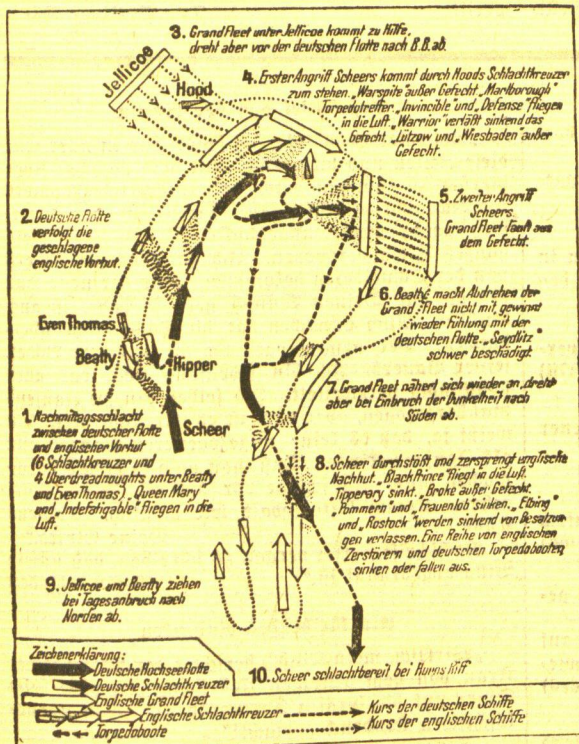 3. Grand Fleet unter Jellicoe kommt zu Hilfe,
dreht aber vor der deutschen Flotte nach B.B. ab.
Jellicoe
Hood
4. Erster Angriff Scheers kommt durch Hoods Schlachtkreuzer
zum stehen. „Warspite" außer Gefecht. „Marlborough"
Torpedotreffer. „Invincible" und „Defense" fliegen
in die Luft. „Warrior" verläßt sinkend das
Gefecht. „Lützow" und „Wiesbaden" außer
Gefecht.
2. Deutsche Flotte
verfolgt die
geschlagene
englische Vorhut.
5. Zweiter Angriff
Scheers.
Grand Fleet läuft aus
dem Gefecht.
6. Beatty macht Abdrehen der
Grand Fleet nicht mit, gewinnt
wieder Fühlung mit der
deutschen Flotte. „Seydlitz"
schwer beschädigt.
Even Thomas
Beatty
Hipper
Scheer
7. Grand Fleet nähert sich wieder an, dreht
aber bei Einbruch der Dunkelheit nach
Süden ab.
1. Nachmittagsschlacht
zwischen deutscher Flotte
und englischer Vorhut
(6 Schlachtkreuzer und
4 Überdreadnoughts unter Beatty
und Even Thomas). „Queen Mary"
und „Indefatigable" fliegen in die
Luft.
8. Scheer durchstößt und zersprengt englische
Nachhut. „Black Prince" fliegt in die Luft.
„Tipperary" sinkt. „Broke" außer Gefecht.
„Pommern" und „Frauenlob" sinken. „Elbing"
und „Rostock" werden sinkend von Besatzun-
gen verlassen. Eine Reihe von englischen
Zerstörern und deutschen Torpedobooten
sinken oder fallen aus.
9. Jellicoe und Beatty ziehen
bei Tagesanbruch nach
Norden ab.
10. Scheer schlachtbereit bei Horns Riff
Zeichenerklärung:
Deutsche Hochseeflotte
Deutsche Schlachtkreuzer
Englische Grand Fleet
Englische Schlachtkreuzer
Torpedoboote
Kurs der deutschen Schiffe
Kurs der englischen Schiffe